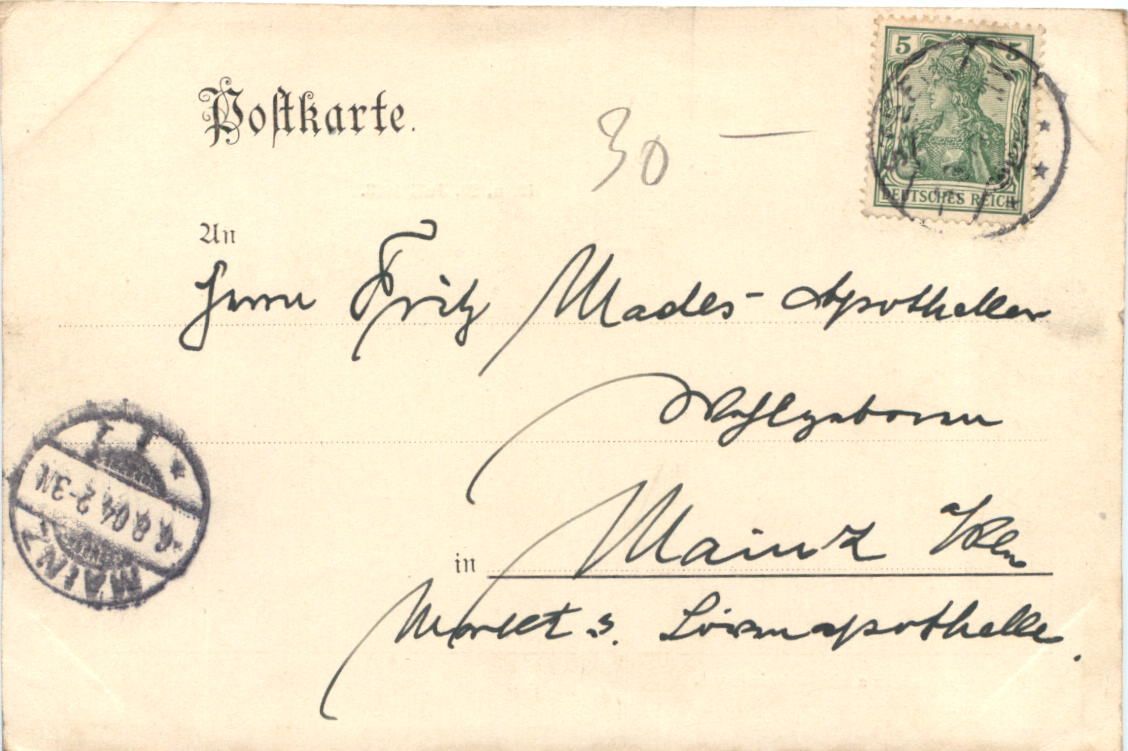 5 5
DEUTSCHES REICH
Postkarte.
30 —
An
Herrn Fritz Mades - Apotheker
Wohlgeboren
in Mainz
Markt 3. Löwenapotheke.
MAINZ
8.04 2-3N
* 1